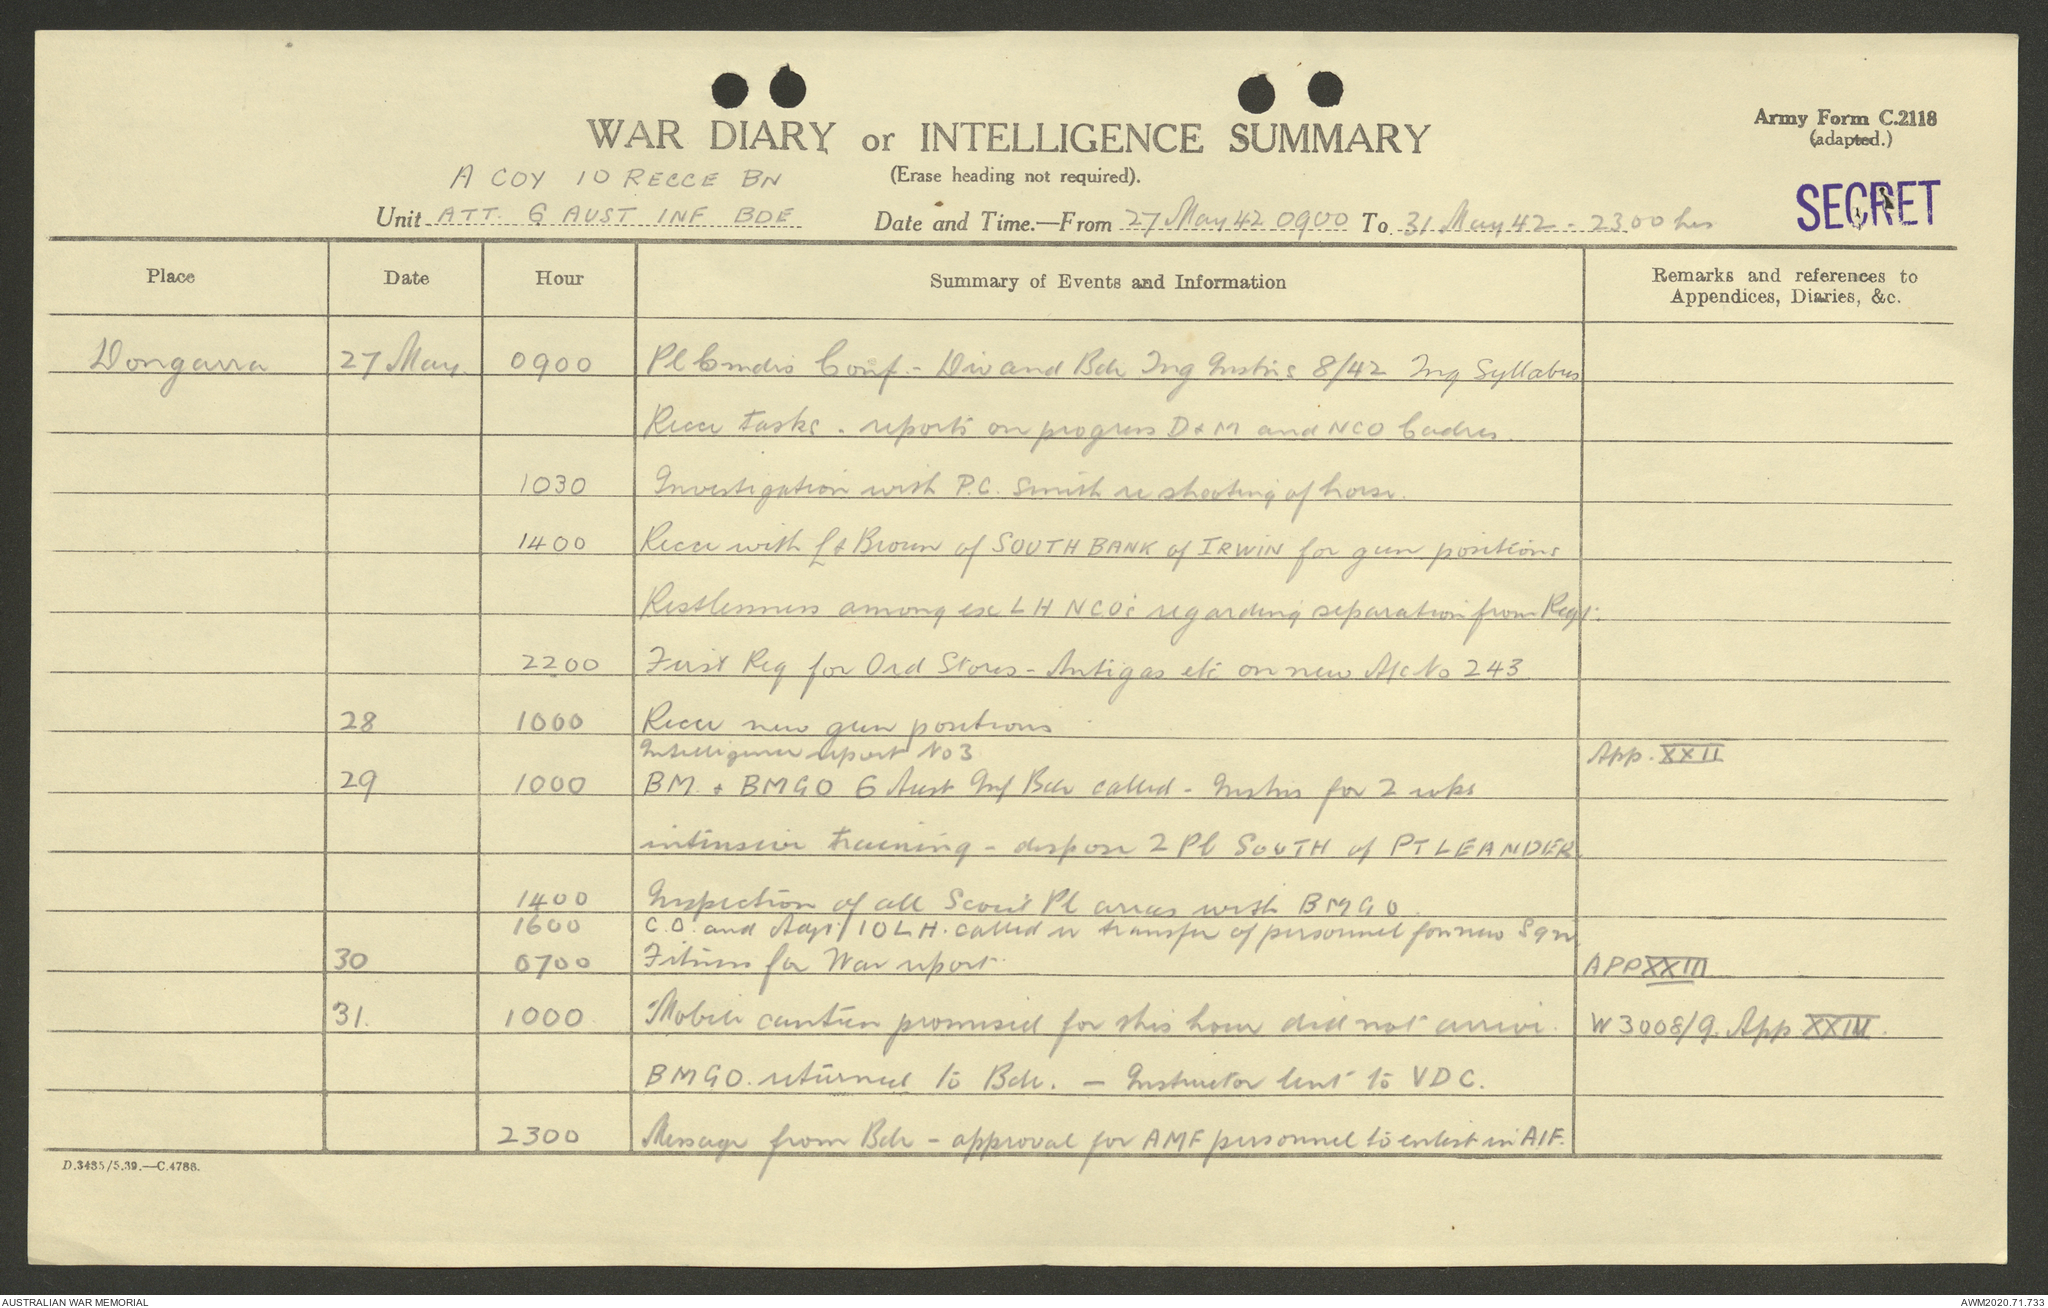 WAR DIARY or INTELLIGENCE SUMMARY
Army Form C.2118
(adapted.)
(Erase heading not required).
SECRET
A COY 10 RECCE BN
Unit ATT. 6 AUST INF BDE
Date and Time.—From 27 May 42 0900 To 31 May 42 - 2300 hrs
Place Date Hour Summary of Events and Information Remarks and references to
Appendices, Diaries, &c.
Dongarra 27 May 0900 Pl Cmdrs Conf. - Div and Bde Trg Instns 8/42 Trg Syllabus
Recce tasks - reports on progress D & M and NCO Cadres.
1030 Investigation with P.C. Smith re shooting of horse.
1400 Recce with Lt Brown of SOUTH BANK of IRWIN for gun positions
Restlessness among ex LH NCO's regarding separation from Regt.
2200 First Req for Ord Stores - Antigas etc on new A/c No 243
28 1000 Recce new gun positions
Intelligence report No 3 App. XXII
29 1000 BM. & BMGO 6 Aust Inf Bde called - Instns for 2 wks
intensive training - dispose 2 Pl SOUTH of PT LEANDER.
1400 Inspection of all Scout Pl areas with BMGO.
1600 C.O. and Adjt / 10 L H. called re transfer of personnel for new Sqn
30 0700 Fitness for War report. APP XXIII
31. 1000 Mobile canteen promised for this hour did not arrive. W 3008/9. App XXIII.
BMGO. returned to Bde. - Instructor lent to VDC.
2300 Message from Bde - approval for AMF personnel to enlist in AIF.
D.3435/5.39.—C.4786.
AUSTRALIAN WAR MEMORIAL
AWM2020.71.733